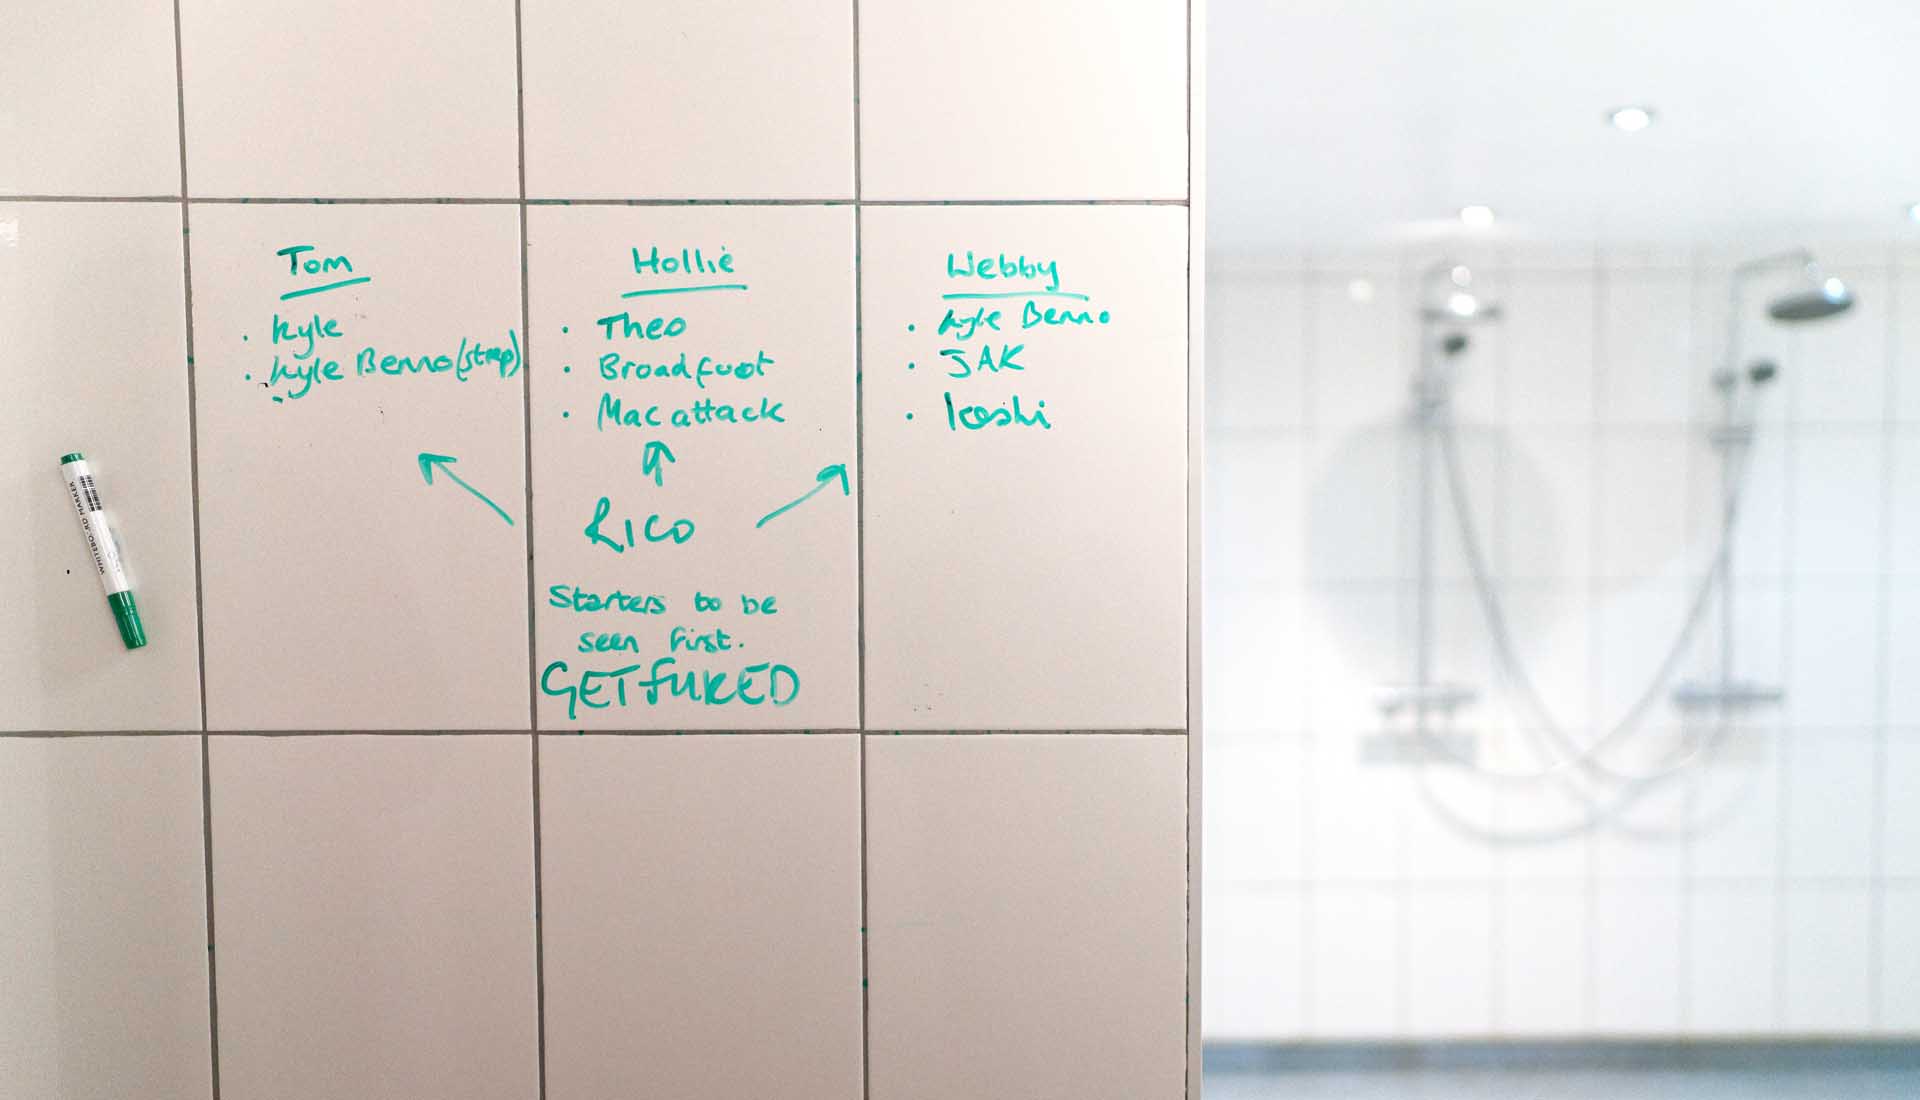 Tom
. Kyle
. Kyle Benno (strap)
Hollie
. Theo
. Broadfoot
. Mac attack
Webby
. Kyle Benno
. JAK
. Koshi
RICO
Starters to be
seen first.
GET FUKED
WHITEBOARD MARKER